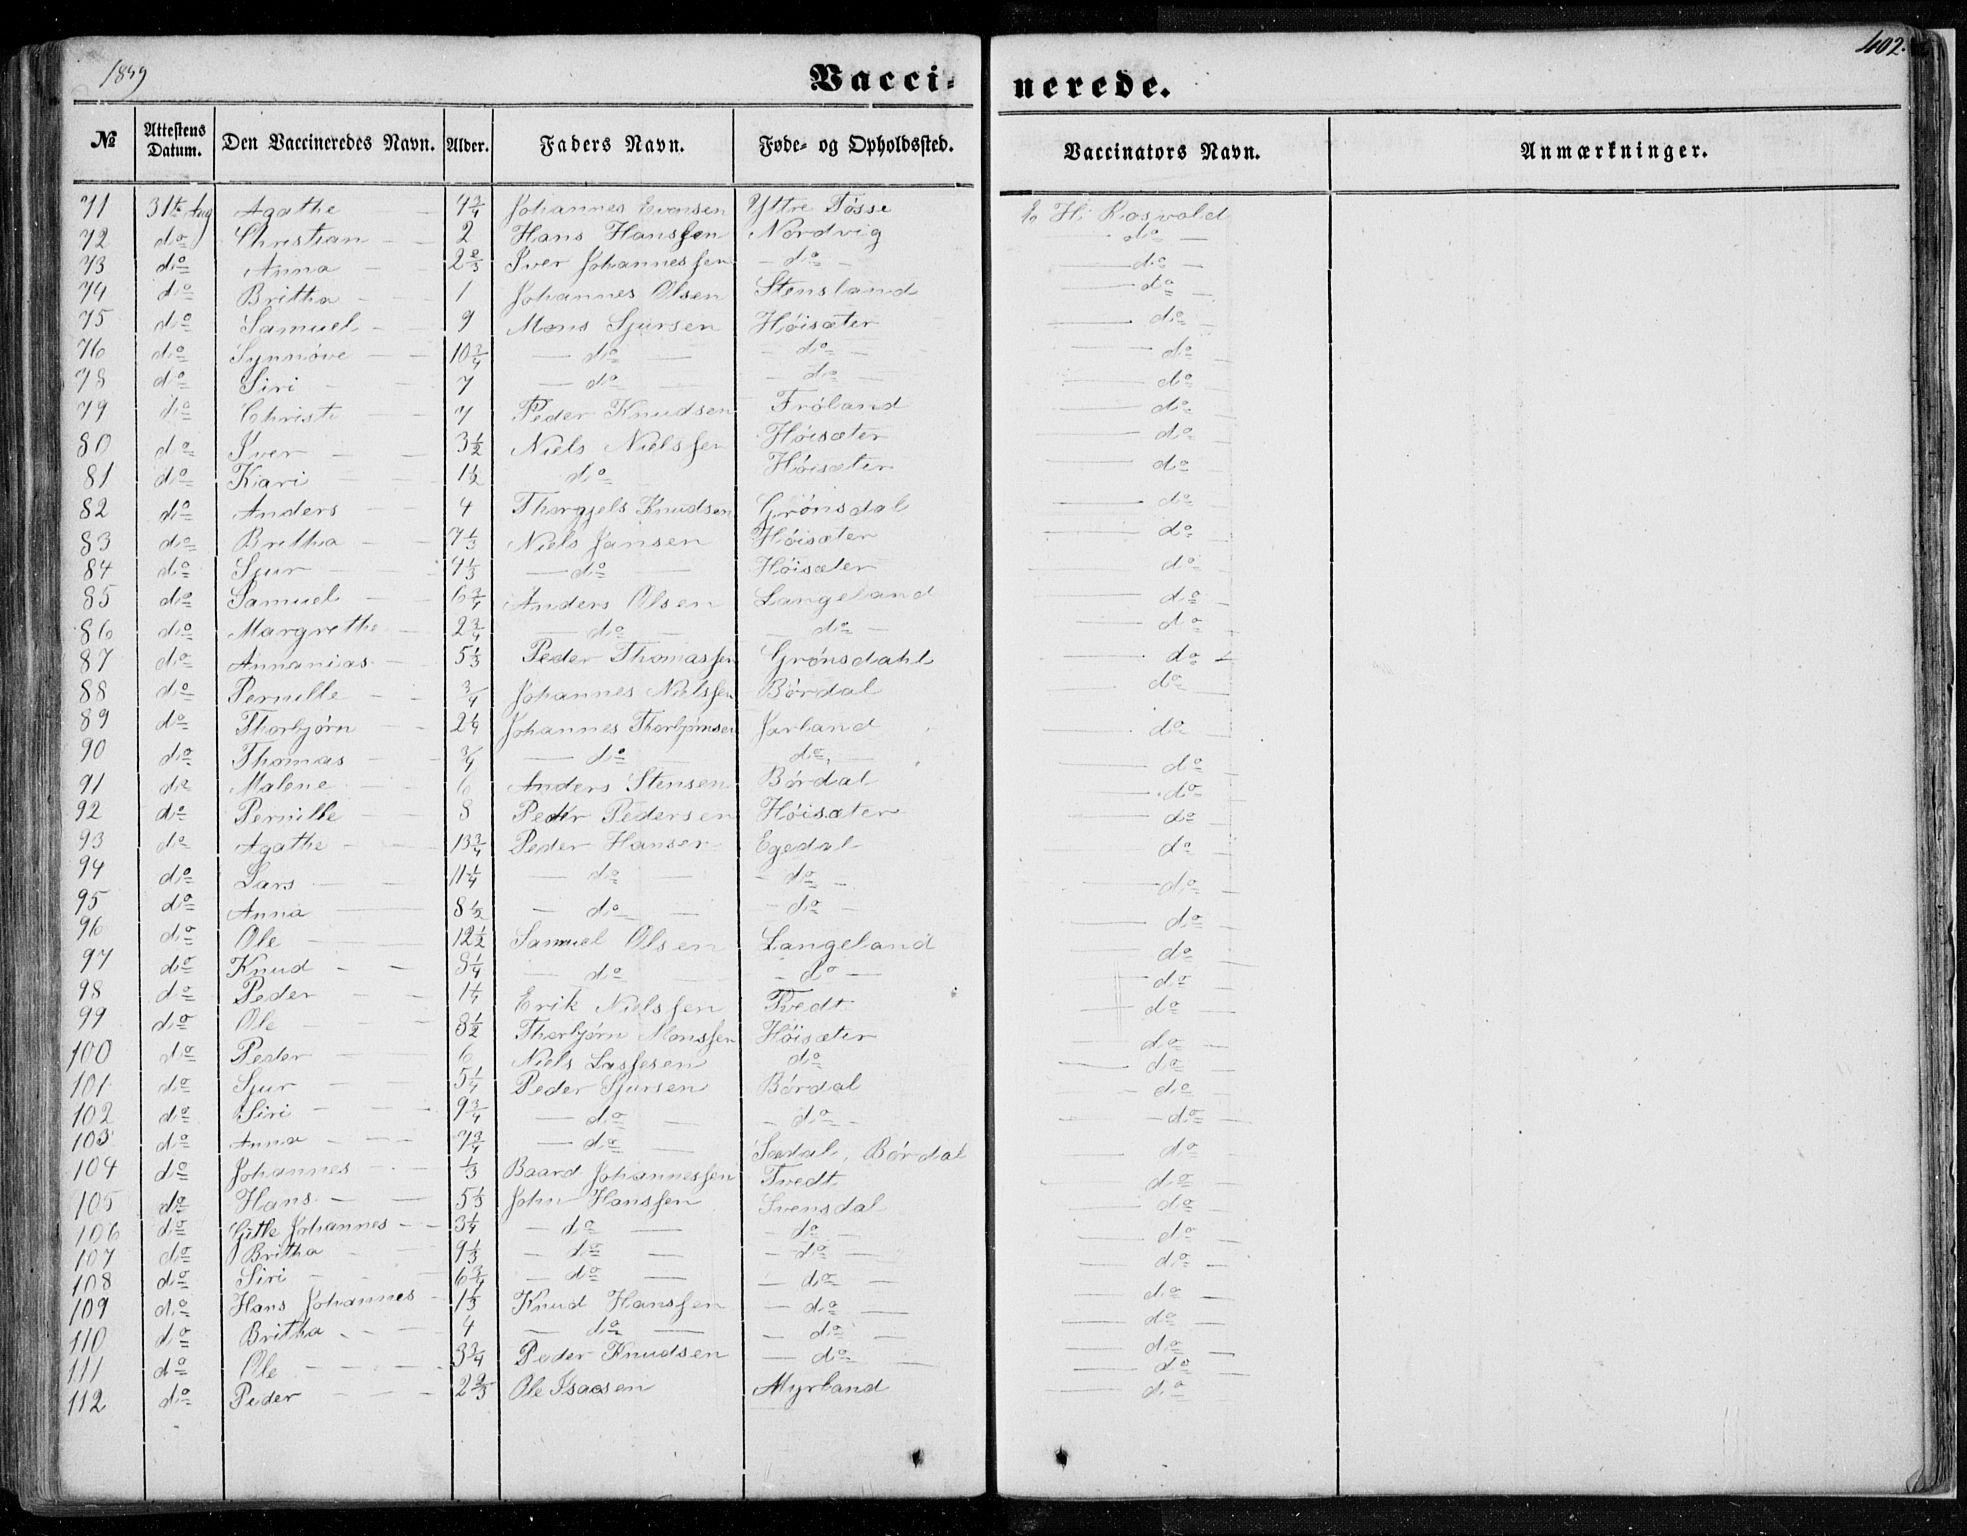 1859
402.
Vacci-
nerede.
№ Attestens Datum. Den Vaccineredes Navn. Alder. Faders Navn. Føde- og Opholdssted. Vaccinators Navn. Anmærkninger.
71 31te Aug Agathe — Johannes Evensen Yttre Tøsse E. H. Rosvold
72 do Christian — — 2 Hans Hanssen Nordvig — do —
73 do Anna — — 2 2/3 Iver Johannessen — do — — do —
74 do Britha — — 1 Johannes Olsen Stensland — do —
75 do Samuel — — 9 Mons Sjursen Høisæter — do —
76 do Synnøve — — 10 3/4 — do — — do — — do —
78 do Siri — — 7 — do — — do — — do —
79 do Christi — 7 Peder Knudsen Frøland — do —
80 do Iver — — 3 1/2 Niels Nielssen Høisæter — do —
81 do Kari — — 1 1/2 do Høisæter — do
82 do Anders — — 4 Thorgjels Knudsen Grønsdal — do —
83 do Britha — — 7 1/3 Niels Jansen Høisæter — do
84 do Sjur — — 4 1/3 — do — Høisæter — do
85 do Samuel — — 6 3/4 Anders Olsen Langeland — do —
86 do Margrethe — 2 3/4 — do — — do — — do —
87 do Annanias — 5 1/3 Peder Thomassen Grønsdahl — do —
88 do Pernille — — 3/4 Johannes Nielssen Børdal — do —
89 do Thorbjørn — — 2 1/4 Johannes Thorbjørnsen Jarland — do
90 do Thomas — — 3/4 — do do — — do —
91 do Malene — — 6 Anders Stensen Børdal — do
92 do Pernille — — 8 Peder Pedersen Høisæter — do
93 do Agathe — — 13 3/4 Peder Hansen Egedal — do —
94 do Lars — — 11 1/4 — do — — do — — do —
95 do Anna — 8 1/2 — do — — do — — do —
96 do Ole — 12 1/2 Samuel Olsen Langeland — do —
97 do Knud — — 8 1/4 — do — do — — do —
98 do Peder — — 1 1/4 Erik Nielssen Tvedt — do —
99 do Ole — — 8 1/2 Thorbjørn Monssen Høisæter — do —
100 do Peder — — 6 Niels Lassesen do — do —
101 do Sjur — — 5 1/4 Peder Sjursen Børdal — do —
102 do Siri — — 9 3/4 — do — — do — — do —
103 do Anna — — 7 3/4 — do — Sædal, Børdal — do —
104 do Johannes — — 1/3 Baard Johannessen Tvedt — do —
105 do Hans — — 5 1/3 John Hanssen Svensdal — do —
106 do Gitle Johannes — — 3 1/4 — do — — do — — do —
107 do Britha — — 9 1/3 — do — — do — — do —
108 do Siri — — 6 3/4 — do — — do — — do —
109 do Hans Johannes — 1 1/3 Knud Hanssen — do — — do —
110 do Britha — — 4 — do — — do — — do —
111 do Ole — — 3 3/4 Peder Knudsen — do — — do —
112 do Peder — — 2 2/3 Ole Isacsen Myrland — do